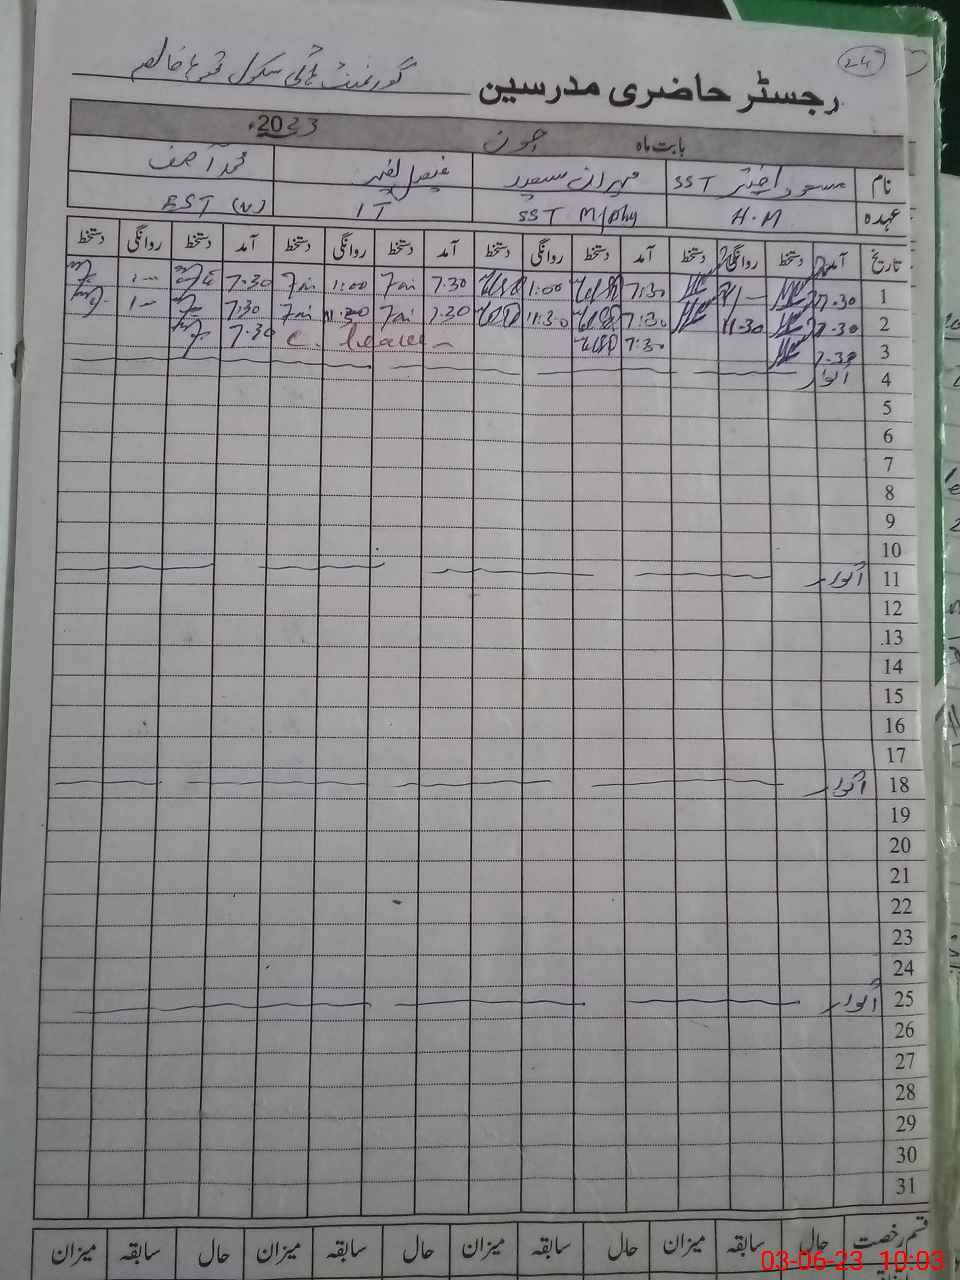 24
رجسٹر حاضری مدرسین گورنمنٹ ہائی سکول
بابت ماہ جون 2023ء
نام مسعود اختر SST مہران سعید فیصل ظہیر محمد آصف
عہدہ H.M SST M/Phy IT EST (N)
تاریخ آمد دستخط روانگی دستخط آمد دستخط روانگی دستخط آمد دستخط روانگی دستخط آمد دستخط روانگی دستخط
1 7.30 1- 7:30 1:00 7.30 1:00 7.30 1--
2 7.30 11.30 7:30 11:30 7.30 11:30 7:30 1--
3 7.30 7:30 C. leave 7.30
4 اتوار
5
6
7
8
9
10
11 اتوار
12
13
14
15
16
17
18 اتوار
19
20
21
22
23
24
25 اتوار
26
27
28
29
30
31
قسم رخصت حال سابقہ میزان حال سابقہ میزان حال سابقہ میزان حال سابقہ میزان
03-06-23 10:03